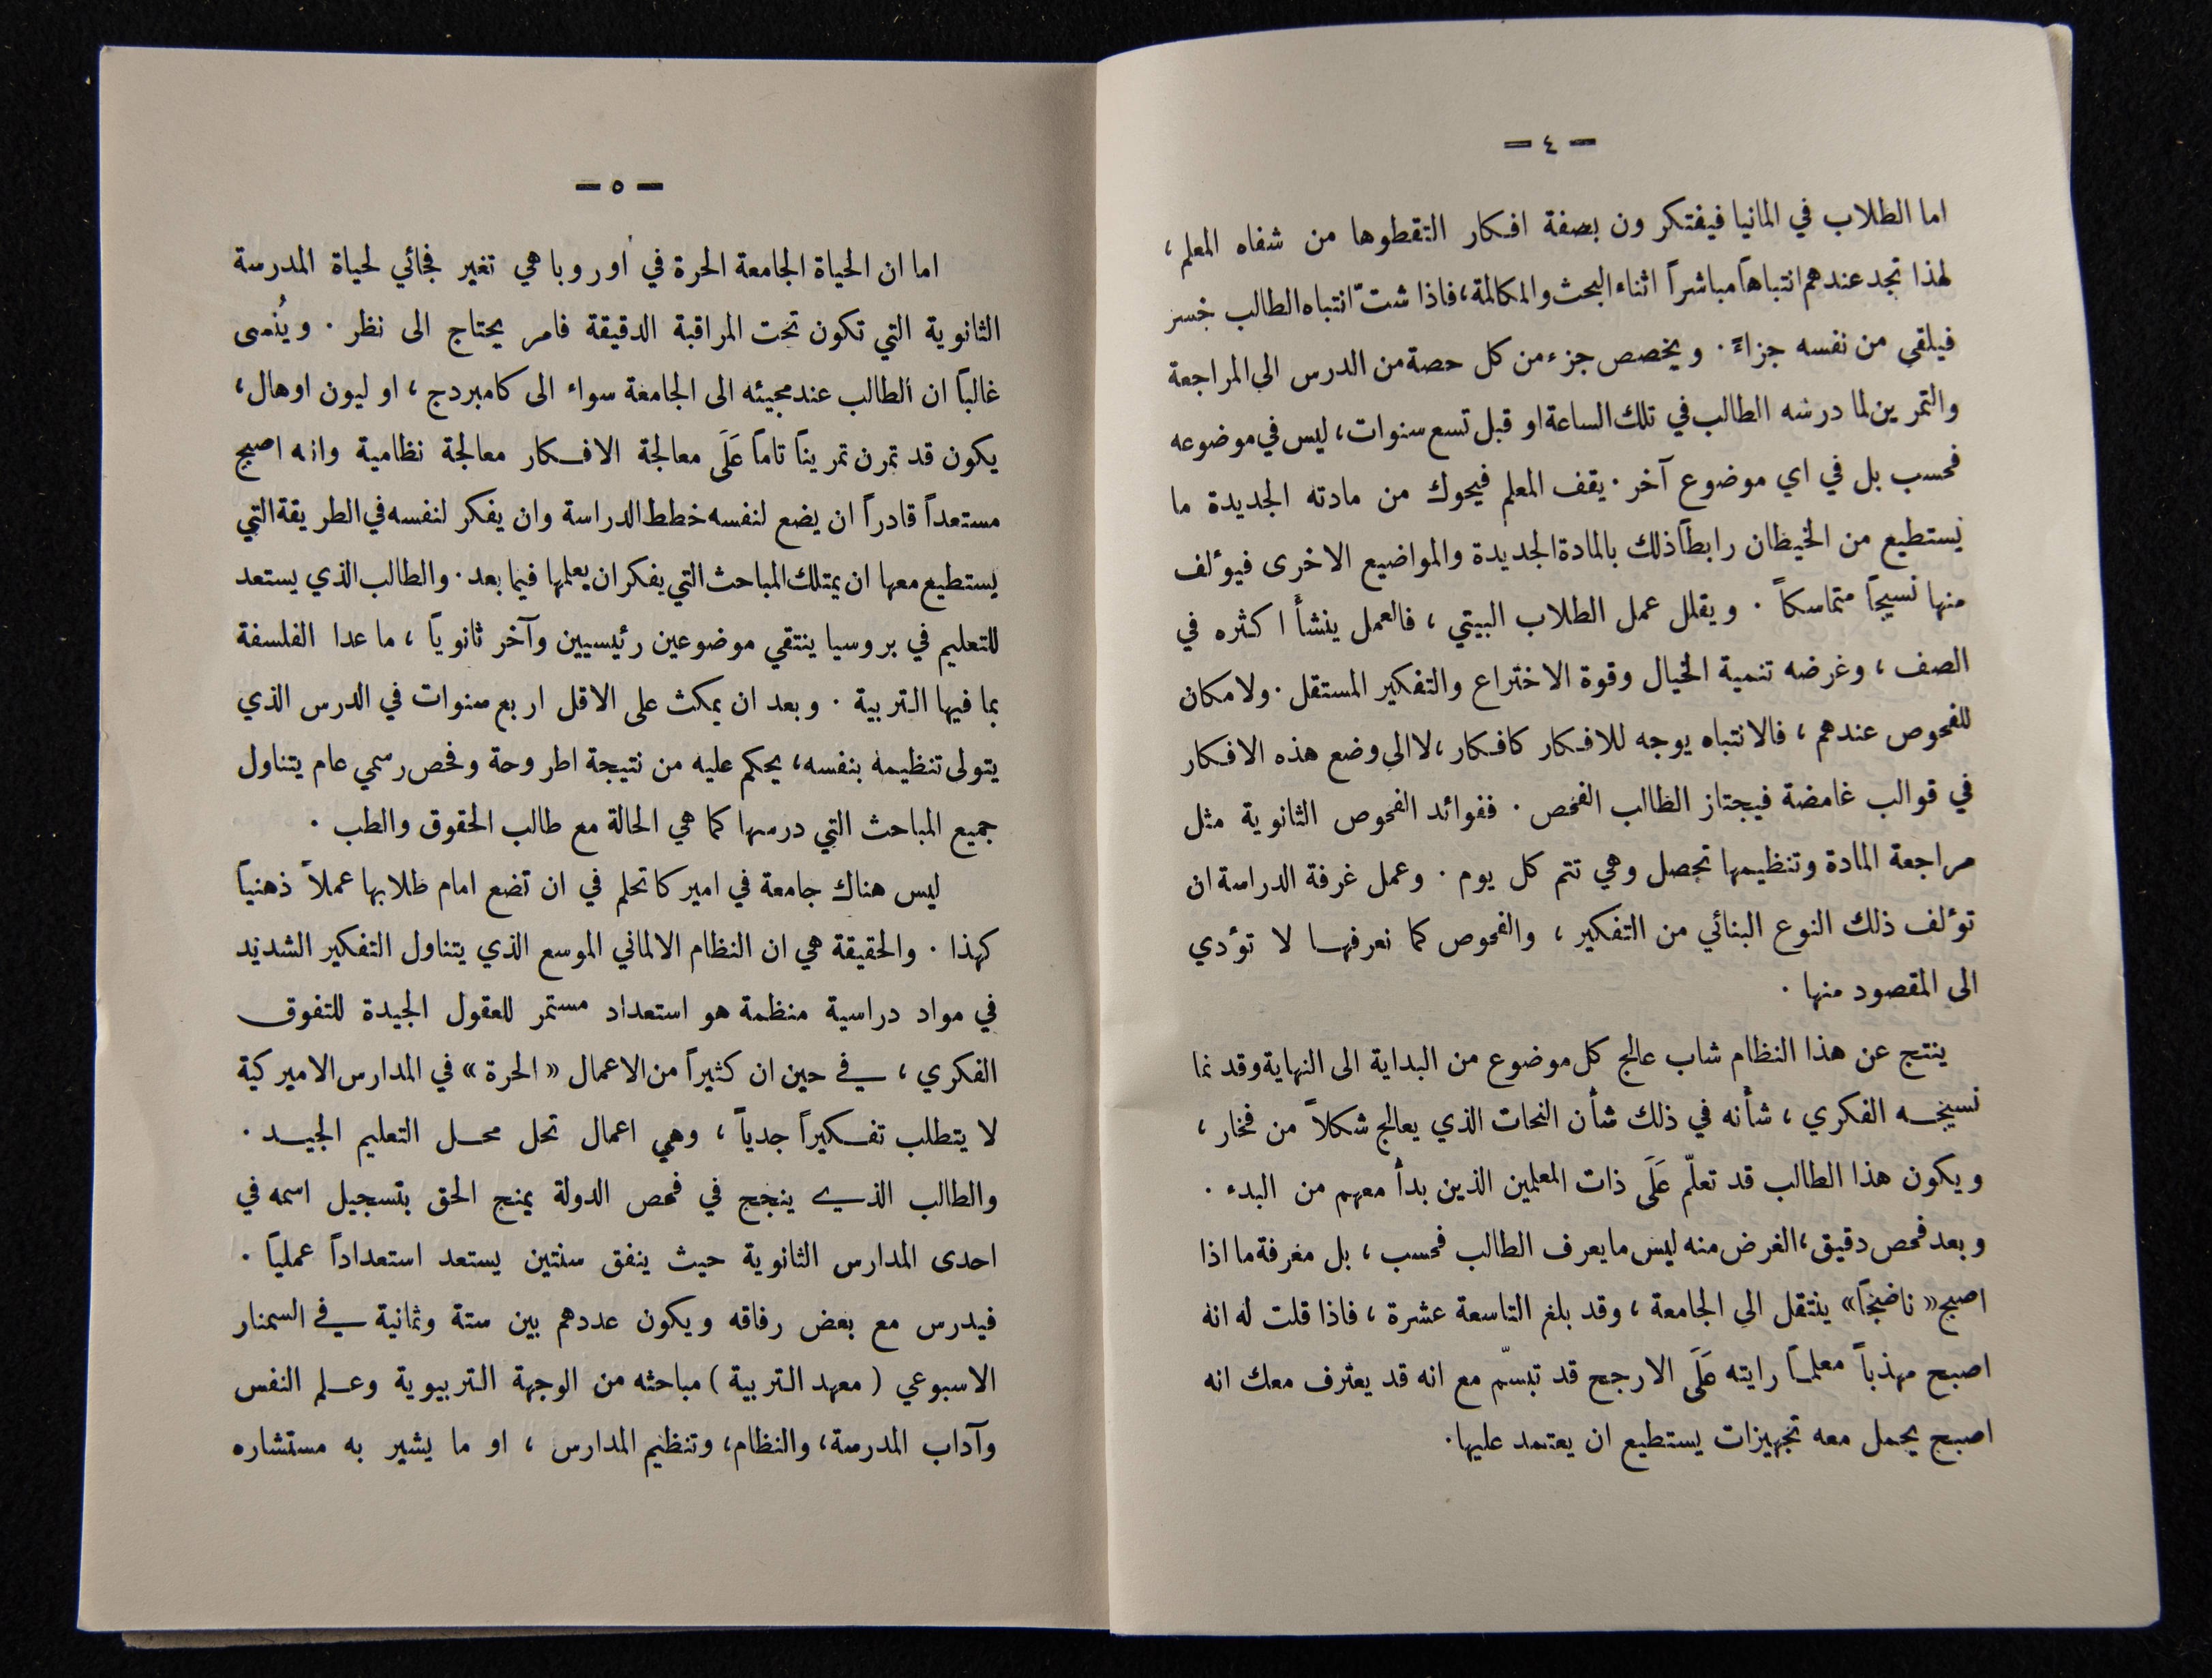 — ٤ —
اما الطلاب في المانيا فيفتكرون بصفة افكار التقطوها من شفاه المعلم ،
لهذا تجد عندهم انتباهاً مباشراً اثناء البحث والمكالمة، فاذا شتّ انتباه الطالب خسر
فيلقى من نفسه جزاءً . ويخصص جزء من كل حصة من الدرس الى المراجعة
والتمرين لما درسه الطالب في تلك الساعة او قبل تسع سنوات، ليس في موضوعه
فحسب بل في اي موضوع آخر . يقف المعلم فيحوك من مادته الجديدة ما
يستطيع من الخيطان رابطاً ذلك بالمادة الجديدة والمواضيع الاخرى فيؤلف
منها نسيجاً متماسكاً . ويقلل عمل الطلاب البيتي ، فالعمل ينشأ اكثره في
الصف ، وغرضه تنمية الخيال وقوة الاختراع والتفكير المستقل . ولا مكان
للفحوص عندهم ، فالانتباه يوجه للافكار كافكار ، لا الى وضع هذه الافكار
في قوالب غامضة فيجتاز الطالب الفحص . ففوائد الفحوص الثانوية مثل
مراجعة المادة وتنظيمها تحصل وهي تتم كل يوم . وعمل غرفة الدراسة ان
تؤلف ذلك النوع البنائي من التفكير ، والفحوص كما نعرفها لا تؤدي
الى المقصود منها .
ينتج عن هذا النظام شاب عالج كل موضوع من البداية الى النهاية وقد نما
نسيجه الفكري ، شأنه في ذلك شأن النحات الذي يعالج شكلاً من فخار ،
ويكون هذا الطالب قد تعلّم عَلَى ذات المعلمين الذين بدأ معهم من البدء .
وبعد فحص دقيق ، الغرض منه ليس ما يعرف الطالب فحسب ، بل معرفة ما اذا
اصبح « ناضجاً » ينتقل الى الجامعة ، وقد بلغ التاسعة عشرة ، فاذا قلت له انه
اصبح مهذباً معلماً رايته عَلَى الارجح قد تبسّم مع انه قد يعترف معك انه
اصبح يحمل معه تجهيزات يستطيع ان يعتمد عليها .
— ٥ —
اما ان الحياة الجامعة الحرة في أوروبا هي تغير فجائي لحياة المدرسة
الثانوية التي تكون تحت المراقبة الدقيقة فامر يحتاج الى نظر . ويُنسى
غالباً ان الطالب عند مجيئه الى الجامعة سواء الى كامبردج ، او ليون او هال ،
يكون قد تمرن تمريناً تاماً عَلَى معالجة الافكار معالجة نظامية وانه اصبح
مستعداً قادراً ان يضع لنفسه خطط الدراسة وان يفكر لنفسه في الطريقة التي
يستطيع معها ان يمتلك المباحث التي يفكر ان يعلمها فيما بعد . والطالب الذي يستعد
للتعليم في بروسيا ينتقي موضوعين رئيسيين وآخر ثانوياً ، ما عدا الفلسفة
بما فيها التربية . وبعد ان يمكث على الاقل اربع سنوات في الدرس الذي
يتولى تنظيمه بنفسه، يحكم عليه من نتيجة اطروحة وفحص رسمي عام يتناول
جميع المباحث التي درسها كما هي الحالة مع طالب الحقوق والطب .
ليس هناك جامعة في اميركا تحلم في ان تضع امام طلابها عملاً ذهنياً
كهذا . والحقيقة هي ان النظام الالماني الموسع الذي يتناول التفكير الشديد
في مواد دراسية منظمة هو استعداد مستمر للعقول الجيدة للتفوق
الفكري ، في حين ان كثيراً من الاعمال « الحرة » في المدارس الاميركية
لا يتطلب تفكيراً جدياً ، وهي اعمال تحل محل التعليم الجيد .
والطالب الذي ينجح في فحص الدولة يمنح الحق بتسجيل اسمه في
احدى المدارس الثانوية حيث ينفق سنتين يستعد استعداداً عملياً .
فيدرس مع بعض رفاقه ويكون عددهم بين ستة وثمانية في السمنار
الاسبوعي ( معهد التربية ) مباحثه من الوجهة التربيوية وعلم النفس
وآداب المدرسة، والنظام، وتنظيم المدارس ، او ما يشير به مستشاره